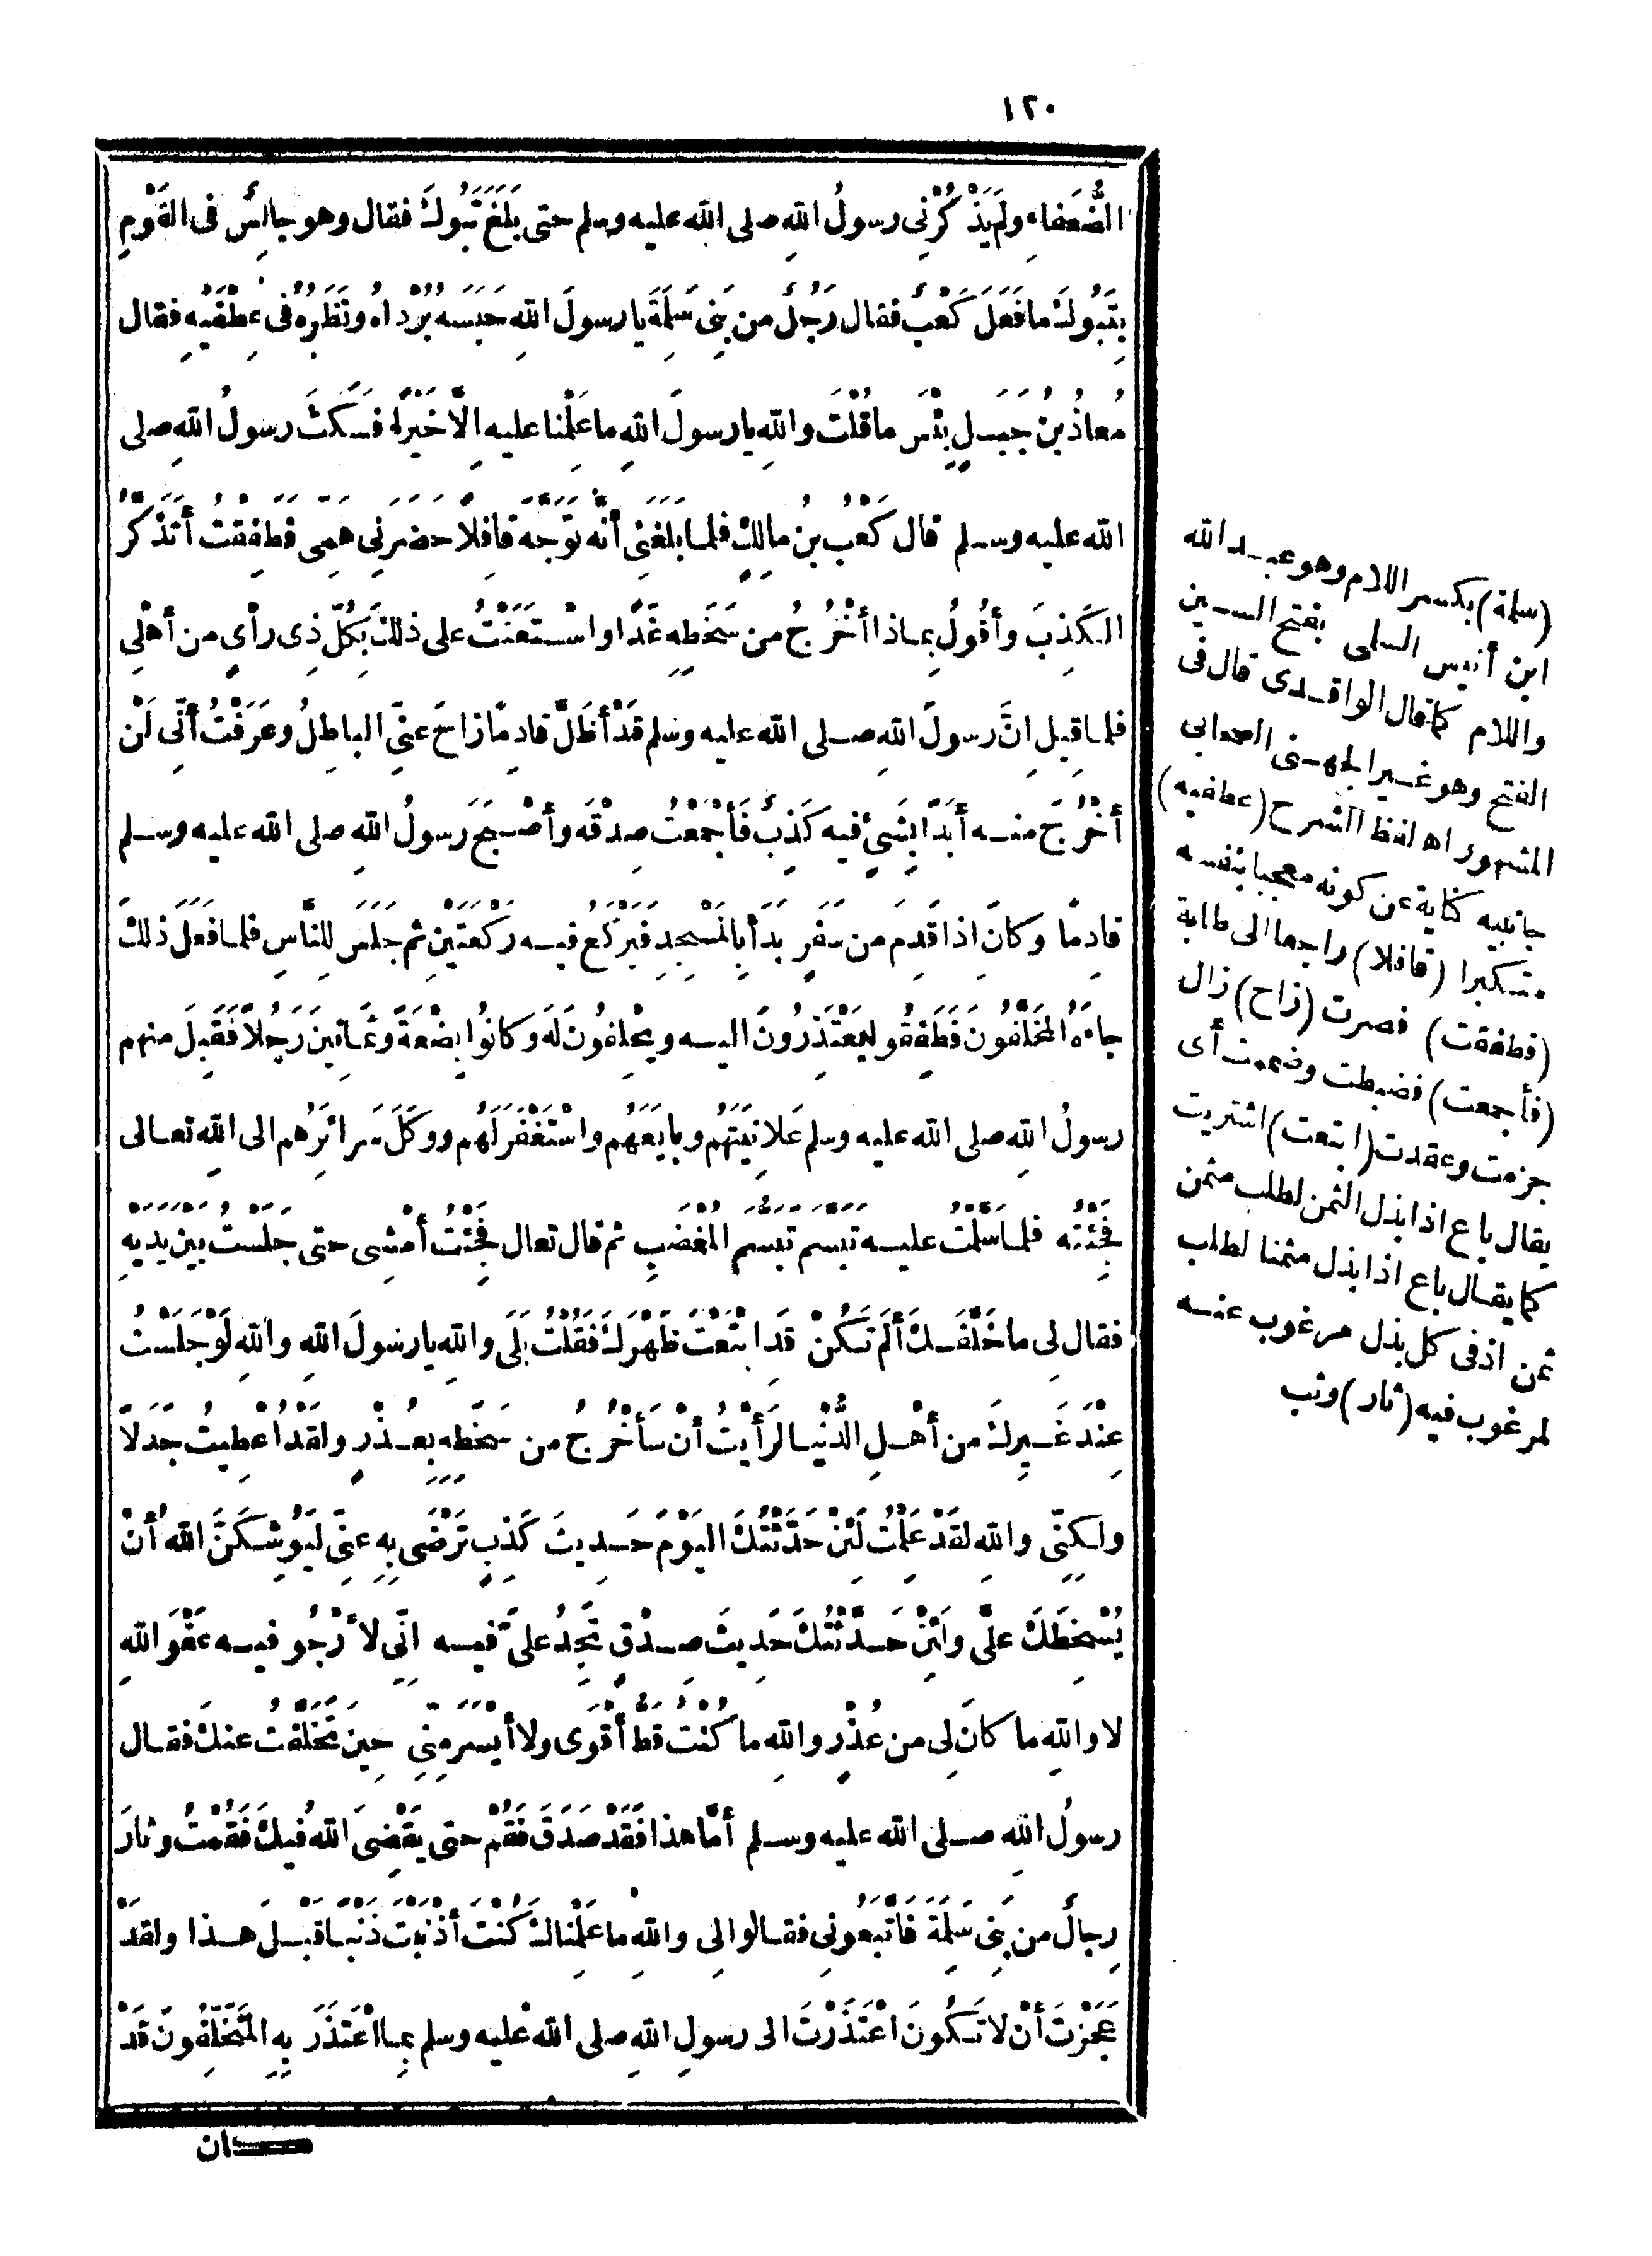 ١٢٠
الضُّعَفاءِ ولَم يَذْكُرْنِى رسولُ اللهِ صلى الله عليه وسلم حتى بَلَغَ تَبُوكَ فقال وهو جالِسٌ فى القَوْمِ
بِتَبُوكَ ما فَعَلَ كَعْبٌ فقال رَجُلٌ من بَنِى سَلِمَةَ يا رسولَ اللهِ حَبَسَه بُرْداهُ ونَظَرُهُ فى عِطْفَيْهِ فقال
مُعاذُ بنُ جَبَلٍ بِئْسَ ما قُلْتَ واللهِ يا رسولَ اللهِ ما عَلِمْنا عليه الَّا خَيْرًا فسَكَتَ رسولُ اللهِ صلى
الله عليه وسلم قال كَعْبُ بنُ مالِكٍ فلما بَلَغَنِى أنَّه تَوَجَّهَ قافِلًا حَضَرَنِى هَمِّى فطَفِقْتُ أتَذَكَّرُ
الكَذِبَ وأقُولُ بماذا أخْرُجُ من سَخَطِهِ غَدًا واسْتَعَنْتُ على ذلكَ بكُلِّ ذِى رأْىٍ من أهْلِى
فلما قِيلَ انَّ رسولَ اللهِ صلى الله عليه وسلم قَدْ أظَلَّ قادِمًا زاحَ عنِّى الباطِلُ وعَرَفْتُ أنِّى لَنْ
أخْرُجَ منه أبَدًا بِشَىْءٍ فيه كَذِبٌ فأجْمَعْتُ صِدْقَه وأصْبَحَ رَسولُ اللهِ صلى الله عليه وسلم
قادِمًا وكانَ اذا قَدِمَ من سَفَرٍ بَدَأ بِالمَسْجِدِ فَيَرْكَعُ فيه رَكْعَتَيْنِ ثم جَلَسَ للنَّاسِ فلما فَعَلَ ذلكَ
جاءَهُ المُخَلَّفُونَ فَطَفِقُوا يَعْتَذِرُونَ اليه ويَحْلِفُونَ لَه وكانُوا بِضْعَةً وثَمانِينَ رَجُلًا فَقَبِلَ منهم
رسولُ اللهِ صلى الله عليه وسلم عَلانِيَتَهُم وبايَعَهُم واسْتَغْفَرَ لَهُم ووَكَلَ سَرائِرَهُم الى اللهِ تعالى
فَجِئْتُه فلما سَلَّمْتُ عليه تَبَسَّمَ تَبَسُّمَ المُغْضَبِ ثم قال تعال فَجِئْتُ أمْشِى حتى جَلَسْتُ بَيْنَ يَدَيْهِ
فقال لِى ما خَلَّفَكَ أَلَم تَكُنْ قَدِ ابْتَعْتَ ظَهْرَكَ فَقُلْتُ بَلَى واللهِ يا رسولَ اللهِ واللهِ لَوْ جَلَسْتُ
عِنْدَ غَيرِكَ من أهْلِ الدُّنْيا لَرَأيْتُ أنْ سَأخْرُجُ من سَخَطِهِ بِعُذْرٍ ولقَدْ أُعْطِيتُ جَدَلًا
ولكِنِّى واللهِ لقَدْ عَلِمْتُ لَئِنْ حَدَّثْتُكَ اليَوْمَ حَدِيثَ كَذِبٍ تَرْضَى بِهِ عنِّى لَيُوشِكَنَّ اللهُ أنْ
يُسْخِطَكَ علَىَّ ولَئِنْ حَدَّثْتُكَ حَدِيثَ صِدْقٍ تَجِدُ علَىَّ فيه انِّى لأرْجُو فيه عَفْوَ اللهِ
لا واللهِ ما كانَ لِى من عُذْرٍ واللهِ ما كُنْتُ قَطُّ أقْوَى ولا أيْسَرَ مِنِّى حِينَ تَخَلَّفْتُ عنكَ فقال
رسولُ اللهِ صلى الله عليه وسلم أمَّا هذا فَقَدْ صَدَقَ فَقُمْ حتى يَقْضِىَ اللهُ فيكَ فَقُمْتُ وثارَ
رِجالٌ من بَنِى سَلِمَةَ فاتَّبَعُونِى فقالوا لِى واللهِ ما عَلِمْناكَ كُنْتَ أذْنَبْتَ ذَنْبًا قَبْلَ هذا ولقَدْ
عَجَزْتَ أنْ لا تَكُونَ اعْتَذَرْتَ الى رسولِ اللهِ صلى الله عليه وسلم بما اعْتَذَرَ بِهِ المُتَخَلِّفُونَ قَدْ
(سلمة) بكسر اللام وهو عبد الله
ابن أنيس السلمى بفتح السين
واللام كما قال الواقدى قال فى
الفتح وهو غير الجهنى الصحابى
المشهور اه لفظ الشرح (عطفيه)
جانبيه كناية عن كونه معجبا بنفسه
متكبرا (قافلا) راجعا الى طابة
(فطفقت) فصرت (زاح) زال
(فأجمعت) فضبطت وضممت أى
جزمت وعقدت (ابتعت) اشتريت
يقال باع اذا بذل الثمن لطلب مثمن
كما يقال باع اذا بذل مثمنا لطلب
ثمن اذ فى كل بذل مرغوب عنه
لمرغوب فيه (ثار) وثب
كان